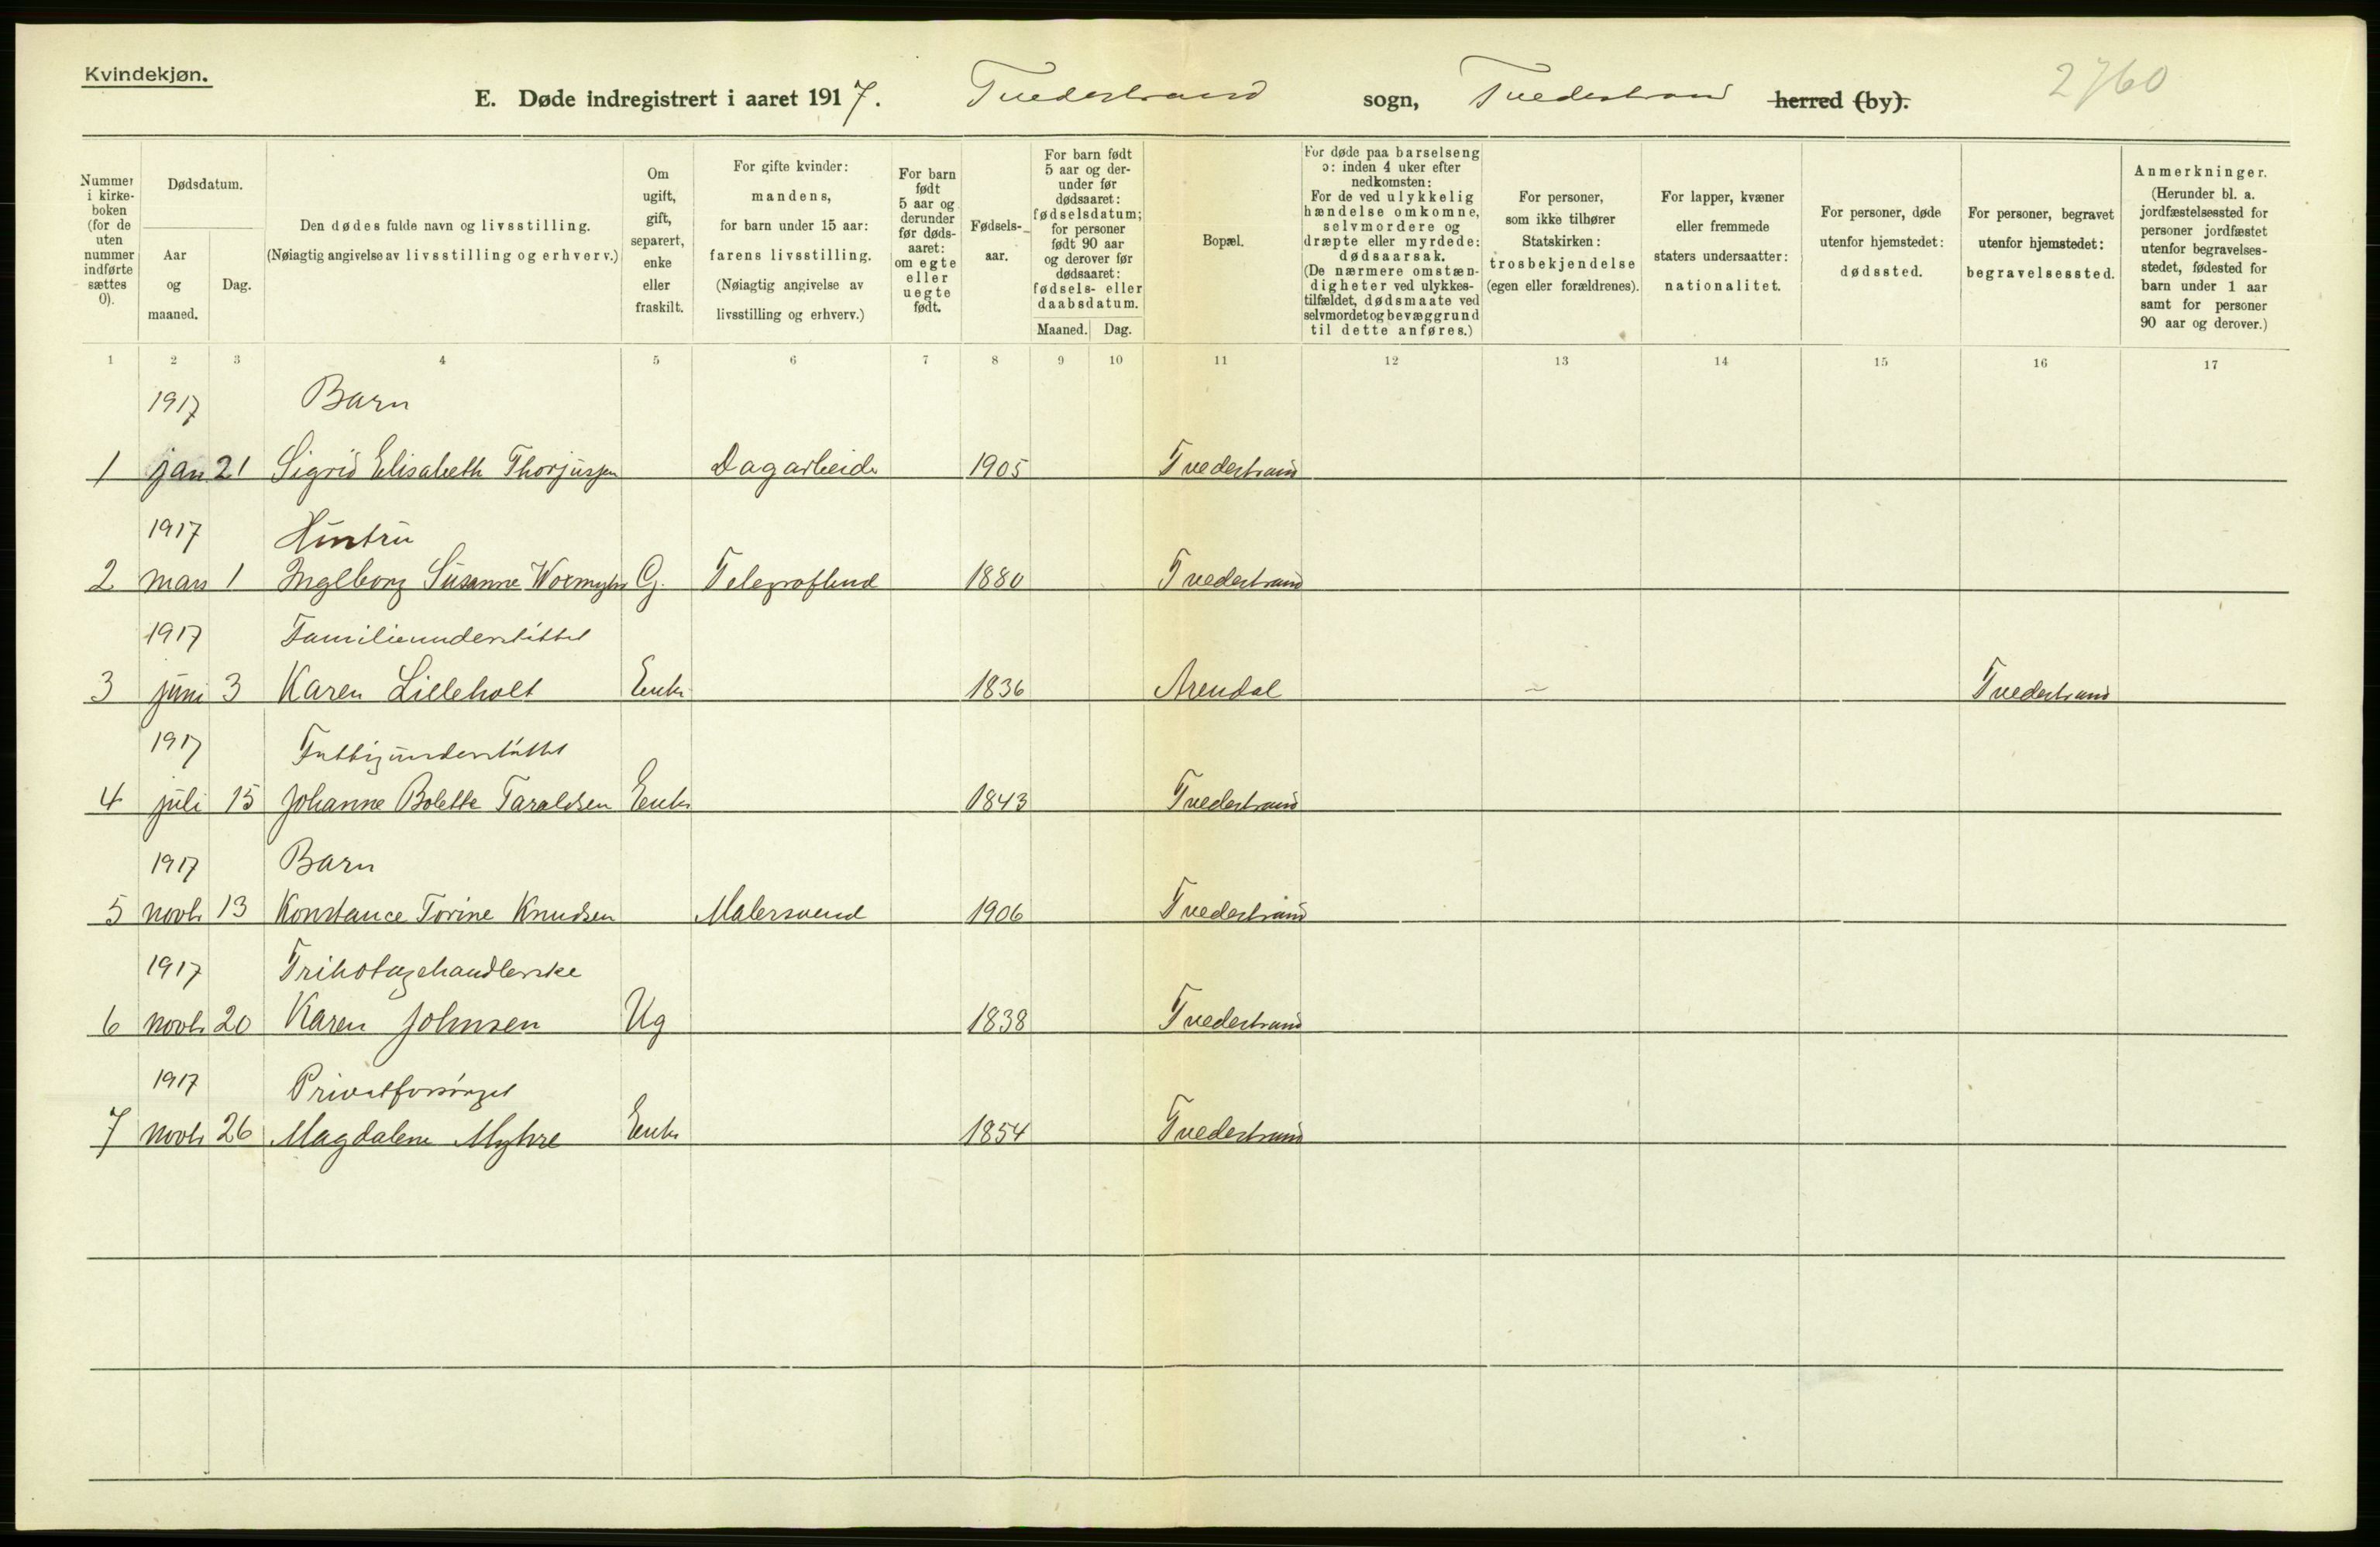 Kvindekjøn.
E. Døde indregistrert i aaret 1917. Tvedestrand sogn, Tvedestrand herred (by). 2760
Nummer i kirkeboken (for de uten nummer indførte sættes 0).
Dødsdatum.
Aar og maaned.
Dag.
Den dødes fulde navn og livsstilling.
(Nøiagtig angivelse av livsstilling og erhverv.)
Om ugift, gift, separert, enke eller fraskilt.
For gifte kvinder: mandens, for barn under 15 aar: farens livsstilling. (Nøiagtig angivelse av livsstilling og erhverv.)
For barn født 5 aar og derunder før dødsaaret: om egte eller uegte født.
Fødselsaar.
For barn født 5 aar og derunder før dødsaaret: fødselsdatum; for personer født 90 aar og derover før dødsaaret: fødsels- eller daabsdatum.
Maaned. Dag.
Bopæl.
For døde paa barselseng ɔ: inden 4 uker efter nedkomsten: For de ved ulykkelig hændelse omkomne, selvmordere og dræpte eller myrdede: dødsaarsak. (De nærmere omstændigheter ved ulykkestilfældet, dødsmaate ved selvmordet og bevæggrund til dette anføres.)
For personer, som ikke tilhører Statskirken: trosbekjendelse (egen eller forældrenes).
For lapper, kvæner eller fremmede staters undersaatter: nationalitet.
For personer, døde utenfor hjemstedet: dødssted.
For personer, begravet utenfor hjemstedet: begravelsessted.
Anmerkninger. (Herunder bl. a. jordfæstelsessted for personer jordfæstet utenfor begravelsesstedet, fødested for barn under 1 aar samt for personer 90 aar og derover.)
1 2 3 4 5 6 7 8 9 10 11 12 13 14 15 16 17
1917 Barn
1 jan 21 Sigrid Elisabeth Thorjussen Dagarbeider 1905 Tvedestrand
1917 Hustru
2 mars 1 Ingeborg Susanne G. Telegrafbud 1880 Tvedestrand
1917 Familieunderstøttet
3 juni 3 Karen Lilleholt Enke 1836 Arendal ~ Tvedestrand
1917 Fattigunderstøttet
4 juli 15 Johanne Bolette Taraldsen Enke 1843 Tvedestrand
1917 Barn
5 novbr 13 Konstance Torine Knudsen Malersvend 1906 Tvedestrand
1917 Trikotagehandlerske
6 novbr 20 Karen Johnsen Ug 1838 Tvedestrand
1917 Privatforsørget
7 novbr 26 Magdalene Myhre Enke 1854 Tvedestrand